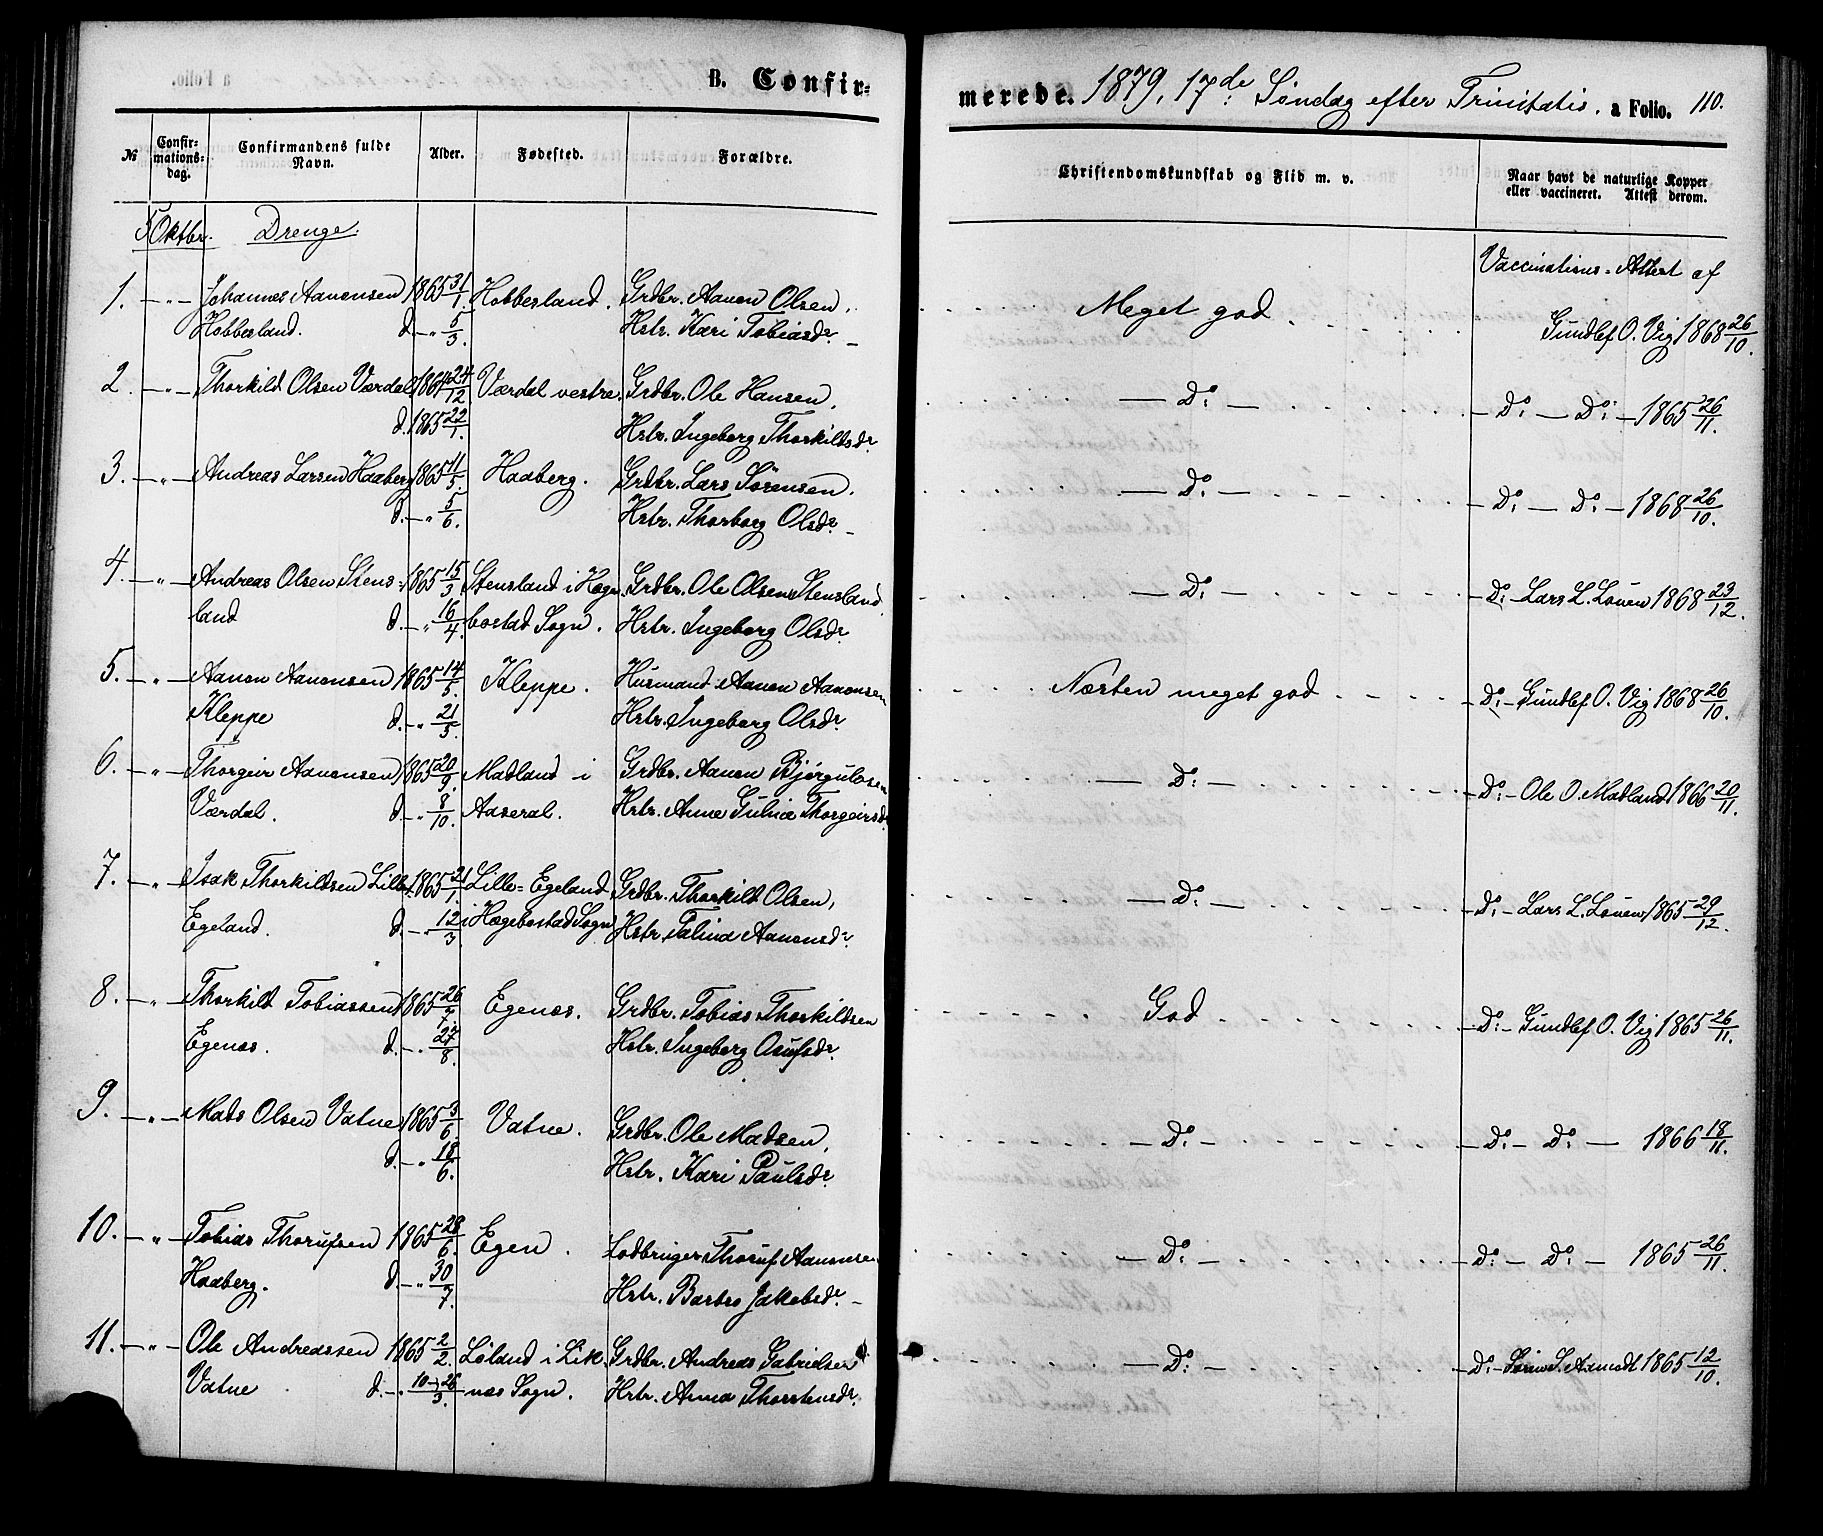 B. Confir-
merede. 1879, 17de: Søndag efter Trinitatis. a Folio. 110.
№ Confirmations-dag. Confirmandens fulde Navn. Alder. Fødested. Forældre. Christendomskundskab og Flid m. v. Naar havt de naturlige Kopper eller vaccineret. Attest derom.
5 Oktbr. Drenge.
Vaccinations-Attest af
1. — " — Johannes Aanensen 1865 31/1. Hobbesland. Grdbr. Aanen Olsen, Meget god
Hobbesland. d. — " 5/3. Hstr. Kari Tobiasdr. Gundlef O. Vig 1868 26/10.
2. — " — Thorkild Olsen Værdal 1864 24/12 Værdal vestre. Grdbr. Ole Hansen, — Do: — — Do: — Do: — 1865 26/11.
d. 1865 22/1. Hstr. Ingeborg Thorkildsdr.
3. — " — Andreas Larsen Haaberg 1865 11/5. Haaberg. Grdbr. Lars Sörensen. — Do: — — Do: — Do: — 1868 26/10.
d. — " 5/6. Hstr. Thorborg Olsdr.
4. — " — Andreas Olsen Stens- 1865 15/3 Stensland i Hæge- Grdbr. Ole Olsen Stensland. — Do: — Do: — Lars L. Lauen 1868 23/12.
land d. — " 16/4. bostad Sogn. Hstr. Ingeborg Olsdr.
5. — " — Aanen Aanensen 1865 14/5. Kleppe. Husmand Aanen Aanensen Næsten meget god Do: — Gundlef O. Vig 1868 26/10.
Kleppe d. — " 21/5. Hstr. Ingeborg Olsdr.
6. — " — Thorgeir Aanensen 1865 20/9. Madland i Grdbr. Aanen Bjørgulvsen — Do: — — Do: — Ole O. Madland 1866 20/11.
Værdal. d. — " 8/10. Aaseral. Hstr. Anne Gulina Thorgeirsdr.
7. — " — Isak Thorkildsen Lille- 1865 21/1. Lille-Egeland Grdbr. Thorkild Olsen, — Do: — — Do: — Lars L. Lauen 1865 29/12.
Egeland. d. — " 12/3 i Hægebostad Sogn Hstr. Talina Aanensdr.
8. — " — Thorkild Tobiassen 1865 26/7. Egenæs. Grdbr. Tobias Thorkildsen God — Do: — Gundlef O. Vig 1865 26/11.
Egenæs. d. — " 27/8. Hstr. Ingeborg Asulfsdr.
9. — " — Mads Olsen Vatne 1865 3/6. Vatne. Grdbr. Ole Madsen, — Do: — — Do: — Do: — 1866 18/11.
d. — " 18/6. Hstr. Kari Paulsdr.
10. — " — Tobias Thorufsen 1865 28/6. Egen. Lodbruger Thoruf Aanensen — Do: — — Do: — Do: — 1865 26/11.
Haaberg. d. — " 30/7. Hstr. Barbro Jakobsdr. —
11. — " — Ole Andreassen 1865 2/2. Løland i Lik- Grdbr. Andreas Gabrielsen — Do: — — Do: — Aamodt 1865 12/10.
Vatne d. — " 26/3. næs Sogn. Hstr. Anna Thorstensdr.